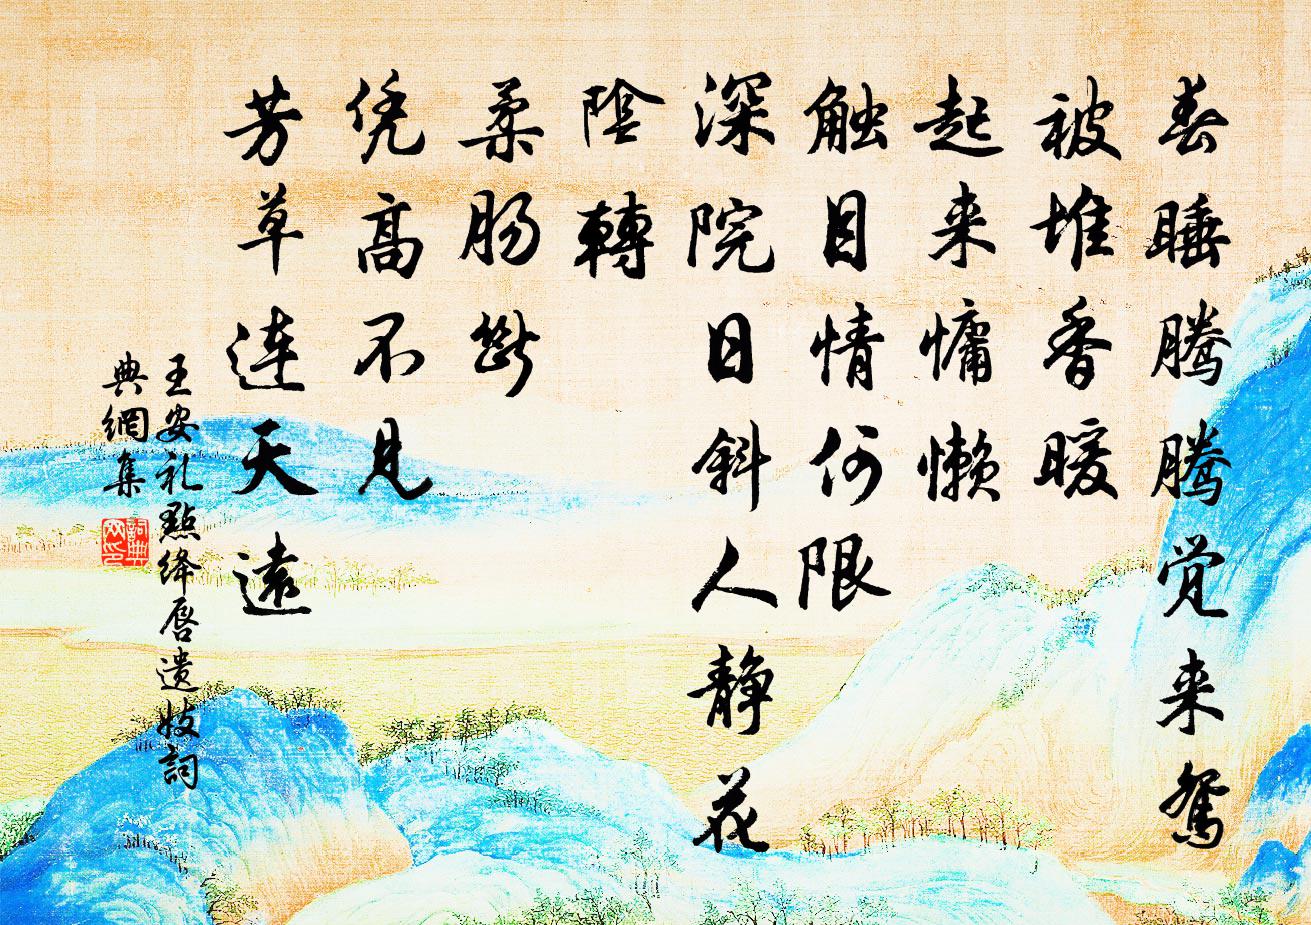 春睡腾腾觉来鸳
被堆香暖
起来慵懒
触目情何限
深院日斜人静花
陰轉
柔肠斷
凭高不见
芳草连天遠
王安礼點绛唇遗妓詞
典網集
詞典
网印